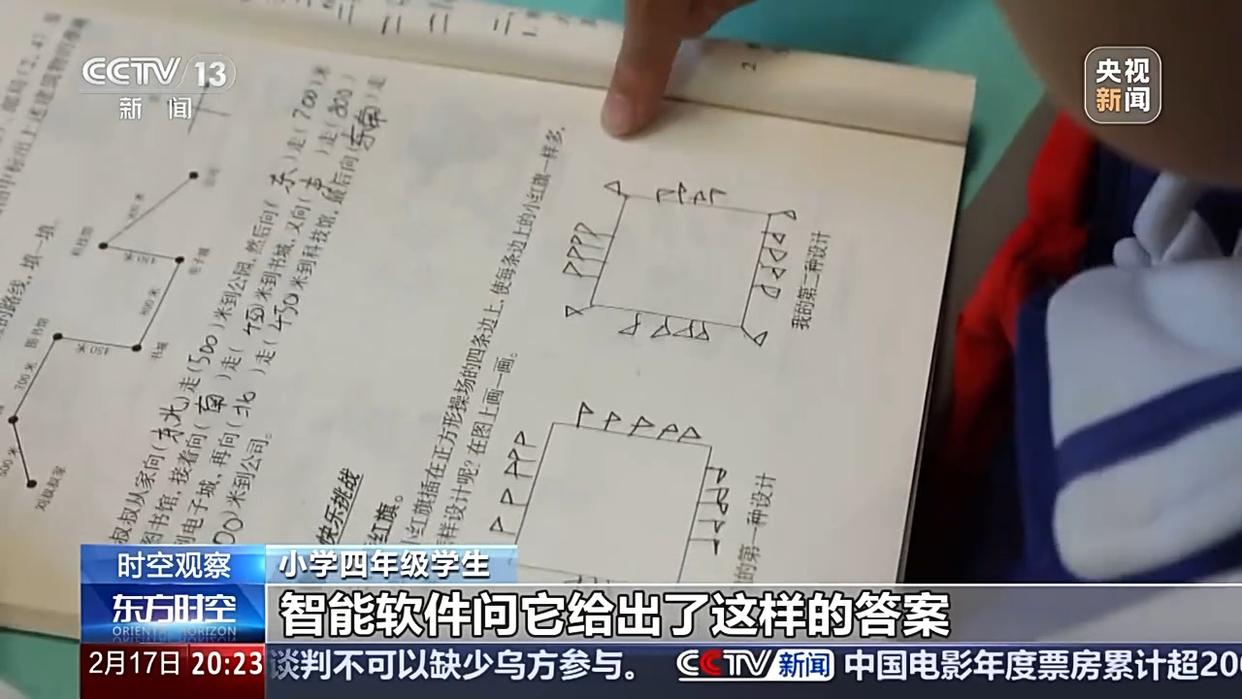 CCTV 13
新闻
央视
新闻
填一填。
图书馆
书城
电子城
450米
叔叔从家向(东北)走(500)米到公园,然后向(东)走(700)米
图书馆,接着向(南)走(450)米到书城,又向(东)走(800)
到电子城,再向(北)走(450)米到科技馆,最后向(东南)走
00)米到公司。
快乐挑战
红旗。
小红旗插在正方形操场的四条边上,使每条边上的小红旗一样多,
样设计呢?在图上画一画。
我的第二种设计
的第一种设计
时空观察
小学四年级学生
东方时空
ORIENTAL HORIZON
智能软件问它给出了这样的答案
2月17日 20:23
谈判不可以缺少乌方参与。 CCTV新闻 中国电影年度票房累计超20